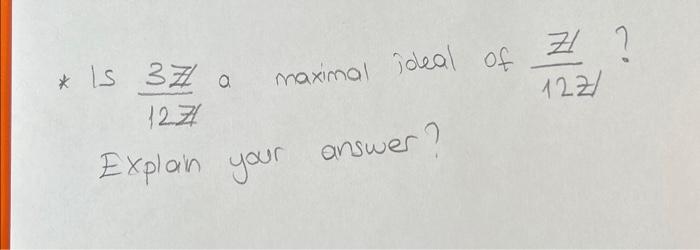 * Is 3ℤ/12ℤ a maximal ideal of ℤ/12ℤ ?
Explain your answer?